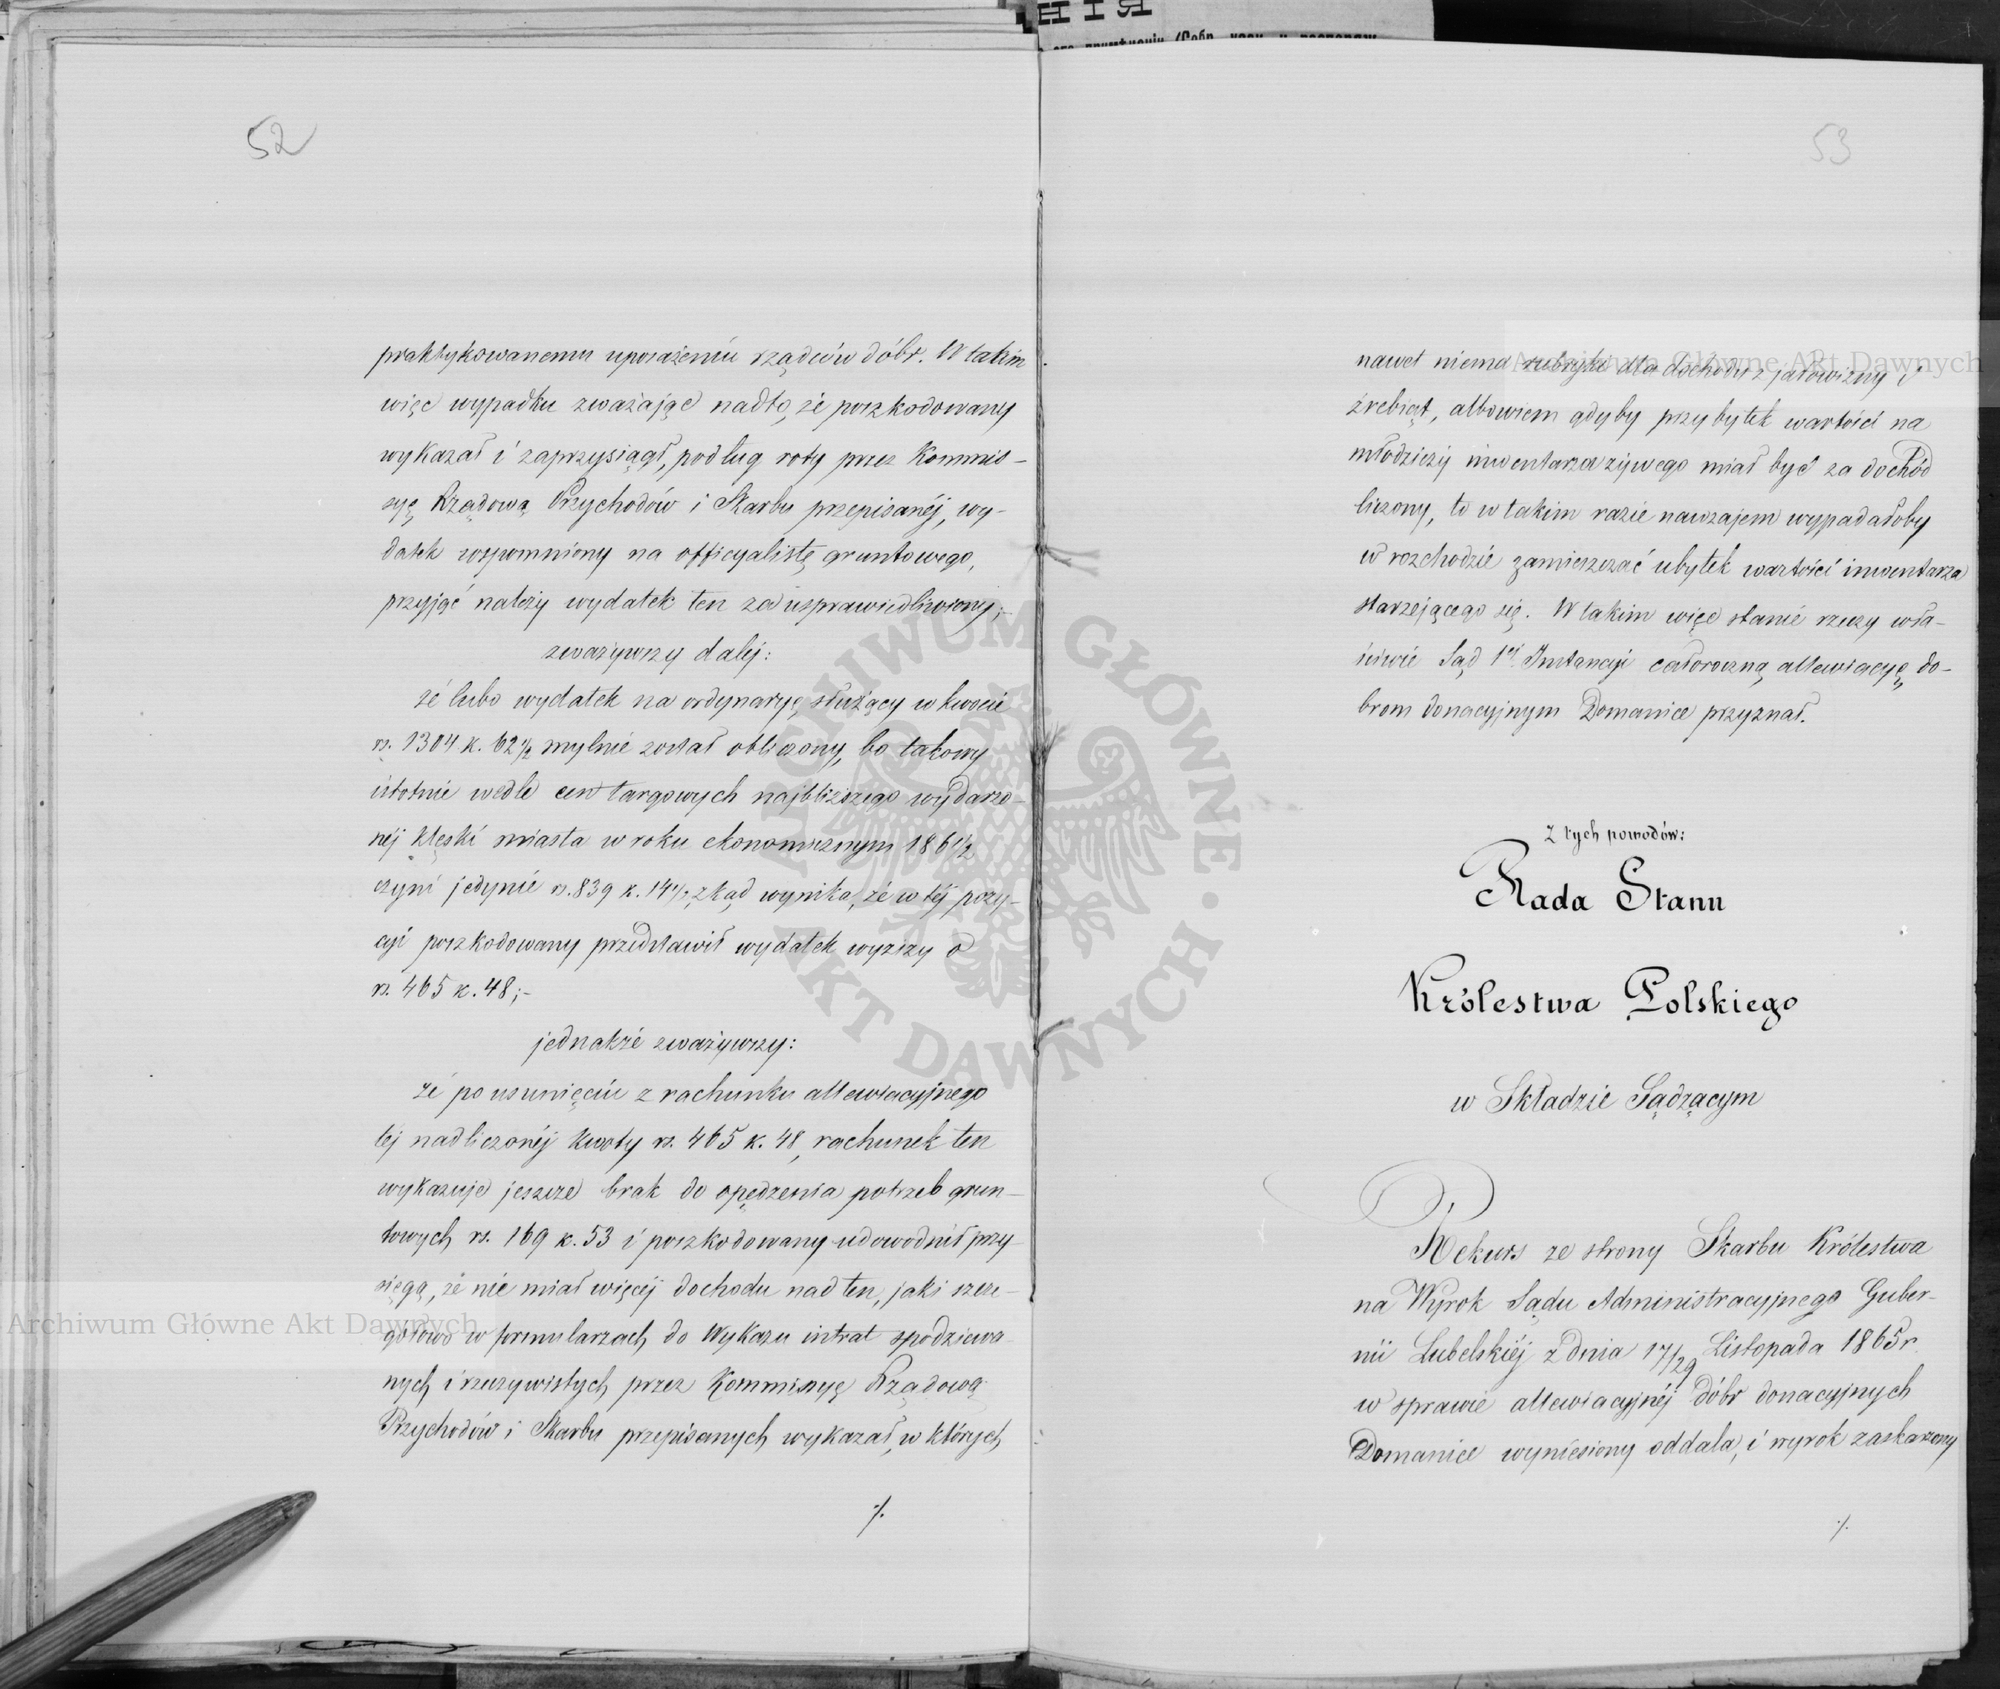 52
praktykowanemu uposażeniu rządców dóbr. W takim
więc wypadku zważając nadto, że poszkodowany
wykazał i zaprzysiągł, podług roty przez Kommis-
syę Rządową Przychodów i Skarbu przepisanéj, wy-
datek wspomniony na officyalistę gruntowego,
przyjąć należy wydatek ten za usprawiedliwiony;-
zważywszy daléj:
że lubo wydatek na ordynaryę służący w kwocie
rs. 1304 k. 62½ mylnie został obliczony, bo takowy
istotnie wedle cen targowych najbliższego wydarzo-
néj klęski miasta w roku ekonomicznym 186½
czyni jedynie rs. 839 k. 14½, zkąd wynika, że w téj pozy-
cyi poszkodowany przedstawił wydatek wyższy o
rs. 465 k. 48;-
jednakże zważywszy:
że po usunięciu z rachunku allewiacyjnego
téj nadliczonéj kwoty rs. 465 k. 48, rachunek ten
wykazuje jeszcze brak do opędzenia potrzeb grun-
towych rs. 169 k. 53 i poszkodowany udowodnił przy-
sięgą, że nie miał więcéj dochodu nad ten, jaki szcze-
gółowo w formularzach do Wykazu intrat spodziewa-
nych i rzeczywistych przez Kommisyę Rządową
Przychodów i Skarbu przepisanych wykazał, w których
./.
53
nawet niema rubryki dla dochodu z jałowizny i
źrebiąt, albowiem gdyby przybytek wartości na
młodzieży inwentarza żywego miał być za dochód
liczony, to w takim razie nawzajem wypadałoby
w rozchodzie zamieszczać ubytek wartości inwentarza
starzejącego się. W takim więc stanie rzeczy wła-
ściwie Sąd 1éj Instancyi całoroczną allewiacyę do-
brom donacyjnym Domanice przyznał.
Z tych powodów:
Rada Stanu
Królestwa Polskiego
w Składzie Sądzącym
Rekurs ze strony Skarbu Królestwa
na Wyrok Sądu Administracyjnego Guber-
nii Lubelskiéj z dnia 17/29 Listopada 1865 r.
w sprawie allewiacyjnéj dóbr donacyjnych
Domanice wyniesiony oddala, i wyrok zaskarżony
./.
Archiwum Główne Akt Dawnych
Archiwum Główne Akt Dawnych
ARCHIWUM GŁÓWNE · AKT DAWNYCH ·